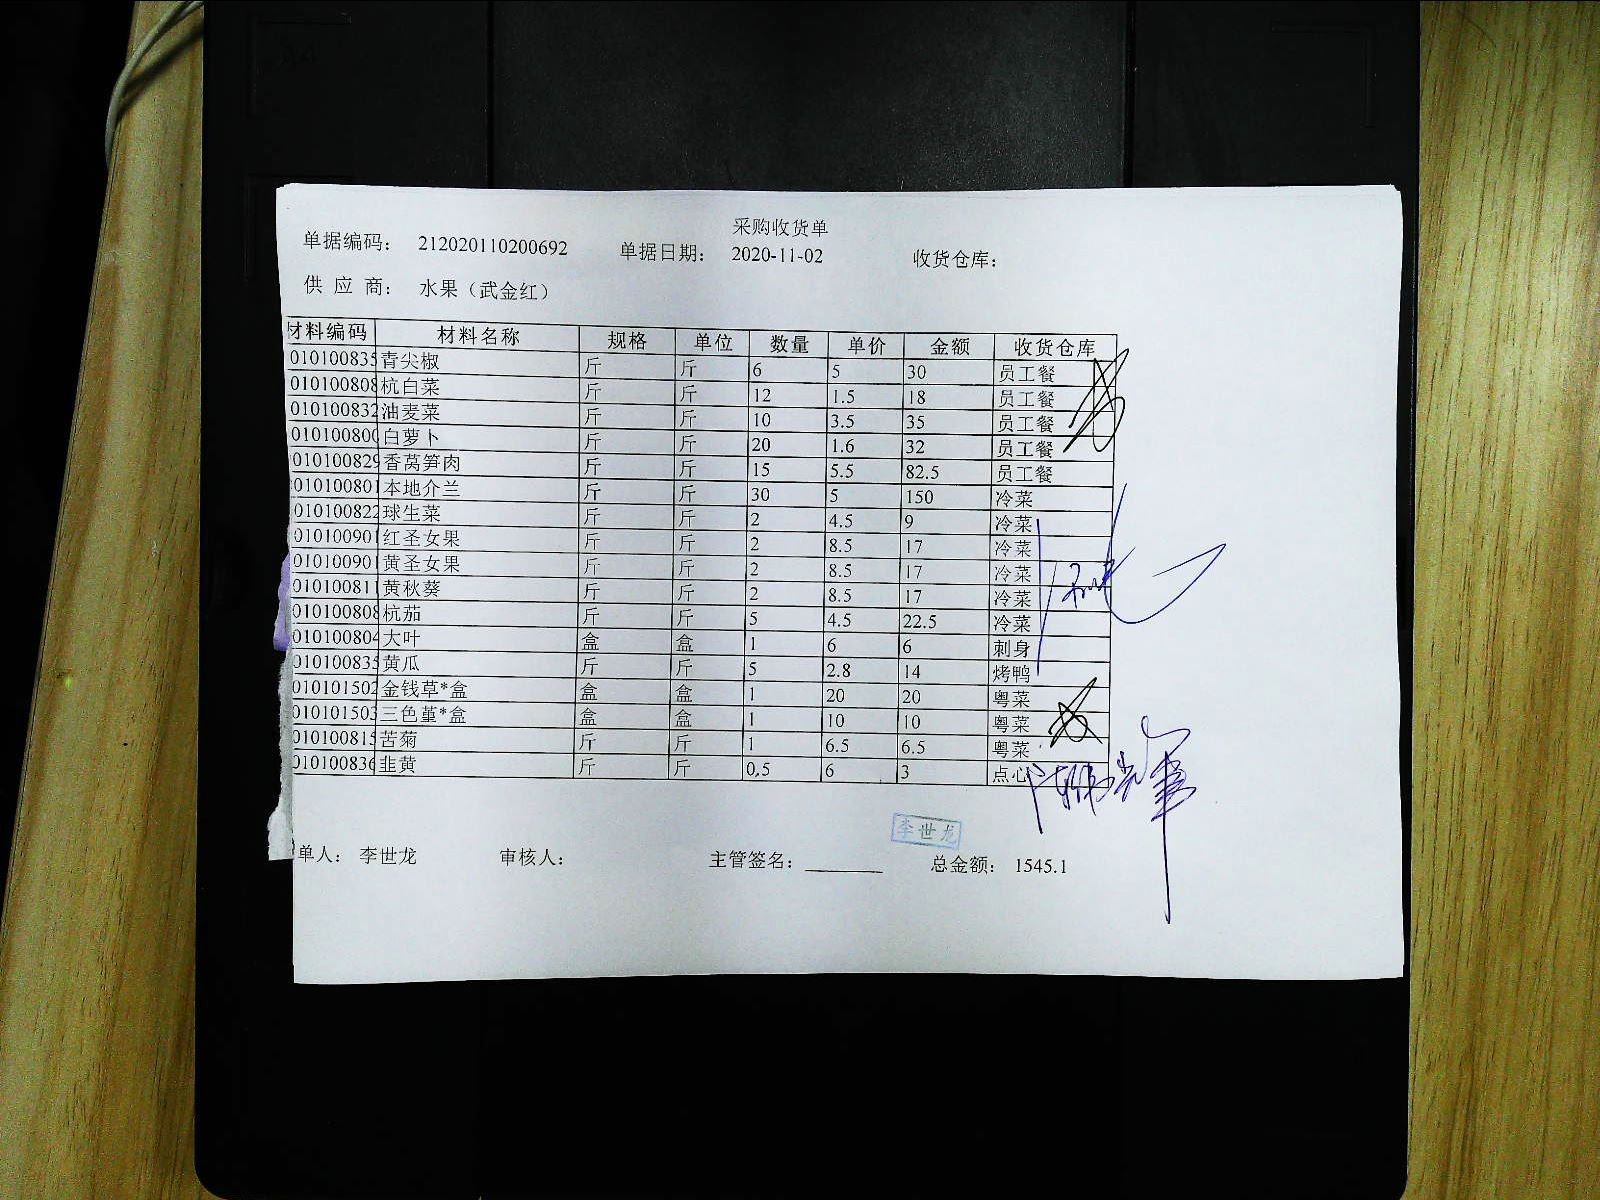 采购收货单
单据编码： 212020110200692 单据日期： 2020-11-02 收货仓库：
供 应 商： 水果（武金红）
材料编码 材料名称 规格 单位 数量 单价 金额 收货仓库
010100835 青尖椒 斤 斤 6 5 30 员工餐
010100808 杭白菜 斤 斤 12 1.5 18 员工餐
010100832 油麦菜 斤 斤 10 3.5 35 员工餐
010100800 白萝卜 斤 斤 20 1.6 32 员工餐
010100829 香莴笋肉 斤 斤 15 5.5 82.5 员工餐
010100801 本地介兰 斤 斤 30 5 150 冷菜
010100822 球生菜 斤 斤 2 4.5 9 冷菜
010100901 红圣女果 斤 斤 2 8.5 17 冷菜
010100901 黄圣女果 斤 斤 2 8.5 17 冷菜
010100811 黄秋葵 斤 斤 2 8.5 17 冷菜
010100808 杭茄 斤 斤 5 4.5 22.5 冷菜
010100804 大叶 盒 盒 1 6 6 刺身
010100835 黄瓜 斤 斤 5 2.8 14 烤鸭
010101502 金钱草*盒 盒 盒 1 20 20 粤菜
010101503 三色堇*盒 盒 盒 1 10 10 粤菜
010100815 苦菊 斤 斤 1 6.5 6.5 粤菜
010100836 韭黄 斤 斤 0.5 6 3 点心
李世龙
单人： 李世龙 审核人： 主管签名： 总金额： 1545.1